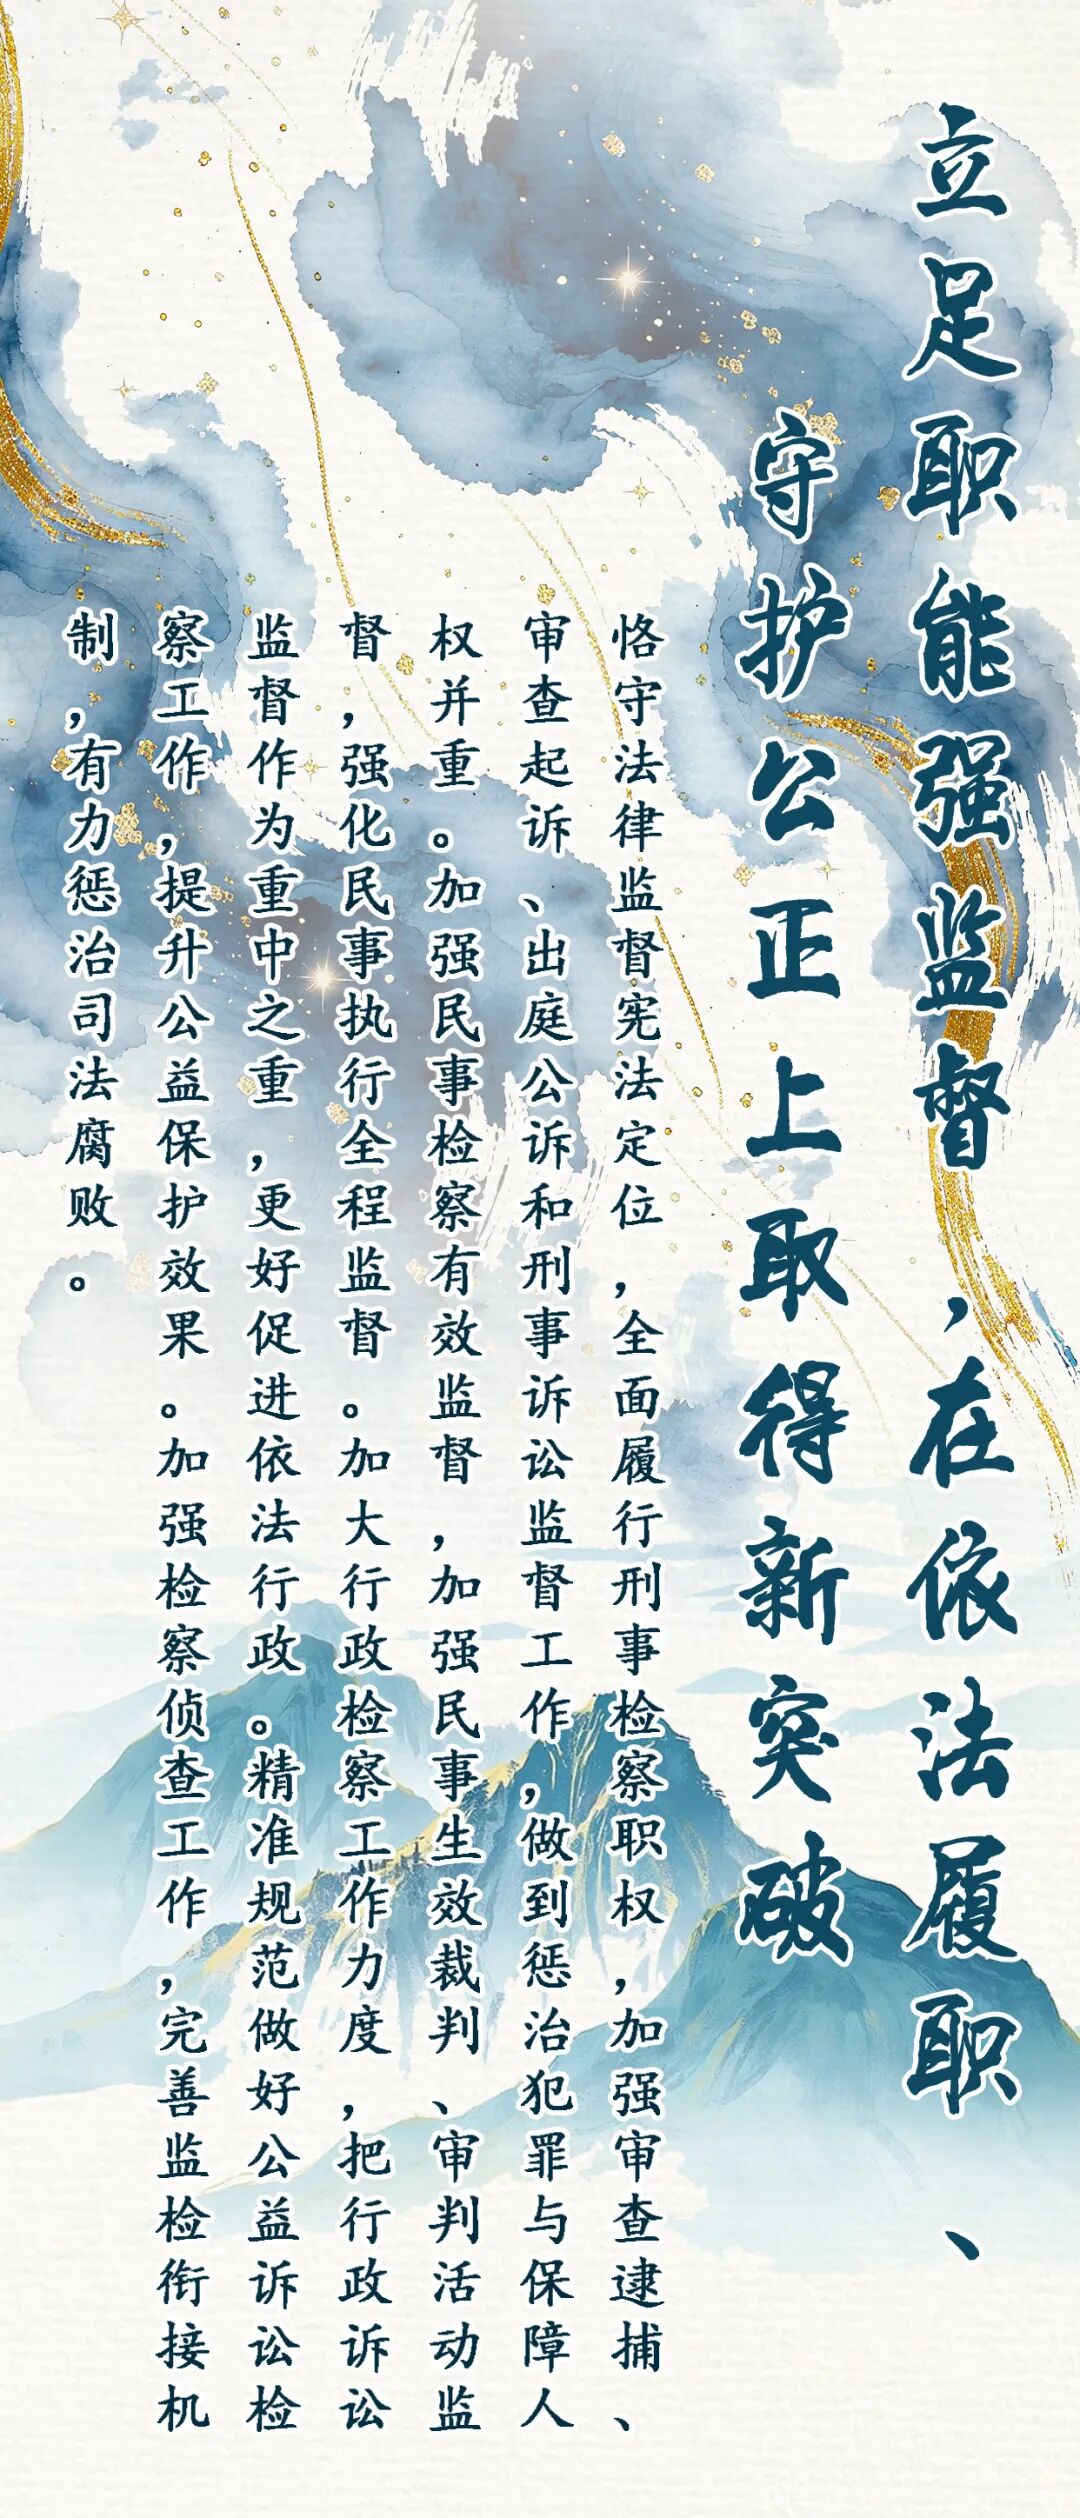 立足职能强监督，在依法履职、
守护公正上取得新突破
恪守法律监督宪法定位，全面履行刑事检察职权，加强审查逮捕、
审查起诉、出庭公诉和刑事诉讼监督工作，做到惩治犯罪与保障人
权并重。加强民事检察有效监督，加强民事生效裁判、审判活动监
督，强化民事执行全程监督。加大行政检察工作力度，把行政诉讼
监督作为重中之重，更好促进依法行政。精准规范做好公益诉讼检
察工作，提升公益保护效果。加强检察侦查工作，完善监检衔接机
制，有力惩治司法腐败。